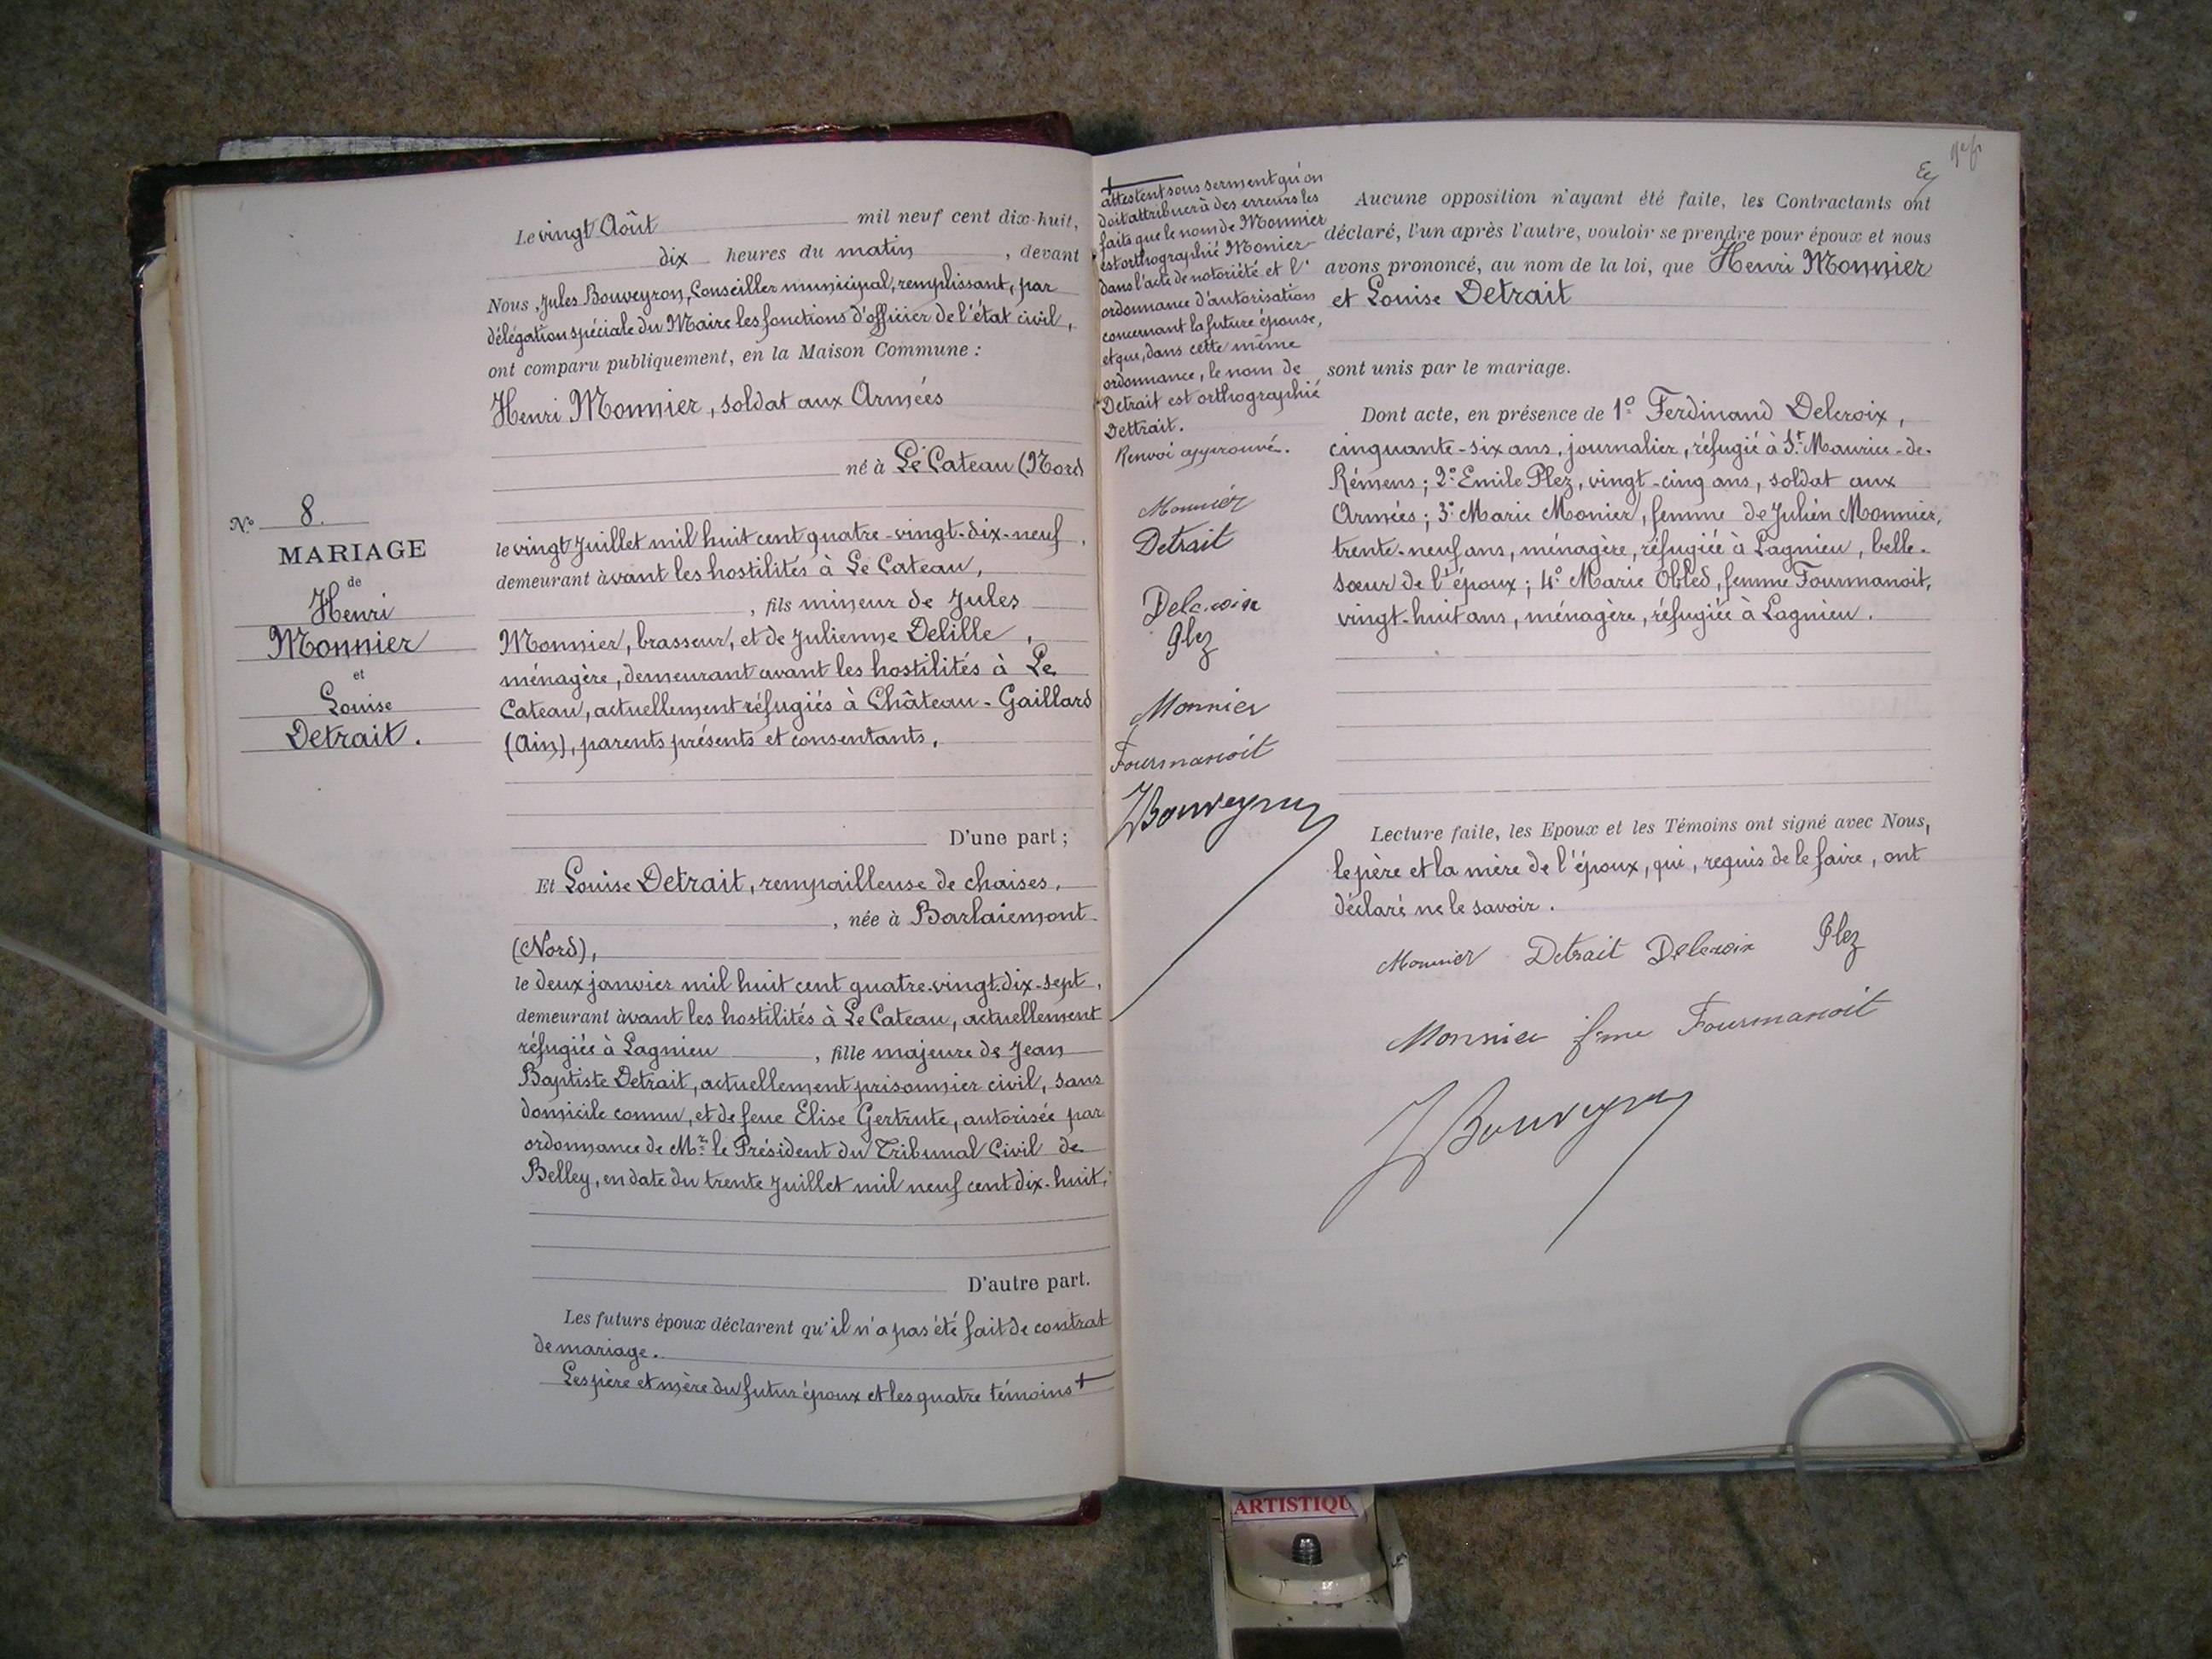 Le vingt Août mil neuf cent dix-huit,
dix heures du matin, devant
Nous, Jules Bouveyron, Conseiller municipal, remplissant, par
délégation spéciale du Maire les fonctions d'officier de l'état civil,
ont comparu publiquement, en la Maison Commune :
Henri Monnier, soldat aux Armées
né à Le Cateau (Nord
N.º 8.
MARIAGE
de
Henri
Monnier
et
Louise
Detrait.
le vingt Juillet mil huit cent quatre-vingt-dix-neuf,
demeurant avant les hostilités à Le Cateau,
, fils mineur de Jules
Monnier, brasseur, et de Julienne Delille,
ménagère, demeurant avant les hostilités à Le
Cateau, actuellement réfugiés à Château-Gaillard
(Ain), parents présents et consentants,
D'une part ;
Et Louise Detrait, rempailleuse de chaises,
, née à Barlaiemont
(Nord),
le deux janvier mil huit cent quatre-vingt-dix-sept,
demeurant avant les hostilités à Le Cateau, actuellement
réfugiée à Lagnieu, fille majeure de Jean
Baptiste Detrait, actuellement prisonnier civil, sans
domicile connu, et de feue Elise Gertrute, autorisée par
ordonnance de Mr. le Président du Tribunal Civil de
Belley, en date du trente Juillet mil neuf cent dix-huit,
D'autre part.
Les futurs époux déclarent qu'il n'a pas été fait de contrat
de mariage.
Les père et mère du futur époux et les quatre témoins +
+
attestent sous serment qu'on
doit attribuer à des erreurs les
faits que le nom de Monnier
est orthographié Monier
dans l'acte de notoriété et l'
ordonnance d'autorisation
concernant la future épouse,
et que, dans cette même
ordonnance, le nom de
Detrait est orthographié
Dettrait.
Renvoi approuvé.
Monnier
Detrait
Delcroix
Plez
Monnier
Fourmanoit
JBouveyron
Aucune opposition n'ayant été faite, les Contractants ont
déclaré, l'un après l'autre, vouloir se prendre pour époux et nous
avons prononcé, au nom de la loi, que Henri Monnier
et Louise Detrait
sont unis par le mariage.
Dont acte, en présence de 1º Ferdinand Delcroix,
cinquante-six ans, journalier, réfugié à St. Maurice-de-
Rémens ; 2º Emile Plez, vingt-cinq ans, soldat aux
Armées ; 3º Marie Monier, femme de Julien Monnier,
trente-neuf ans, ménagère, réfugiée à Lagnieu, belle-
sœur de l'époux ; 4º Marie Obled, femme Fourmanoit,
vingt-huit ans, ménagère, réfugiée à Lagnieu.
Lecture faite, les Epoux et les Témoins ont signé avec Nous,
le père et la mère de l'époux, qui, requis de le faire, ont
déclaré ne le savoir.
Monnier Detrait Delcroix Plez
Monnier fme Fourmanoit
JBouveyron
ARTISTIQU